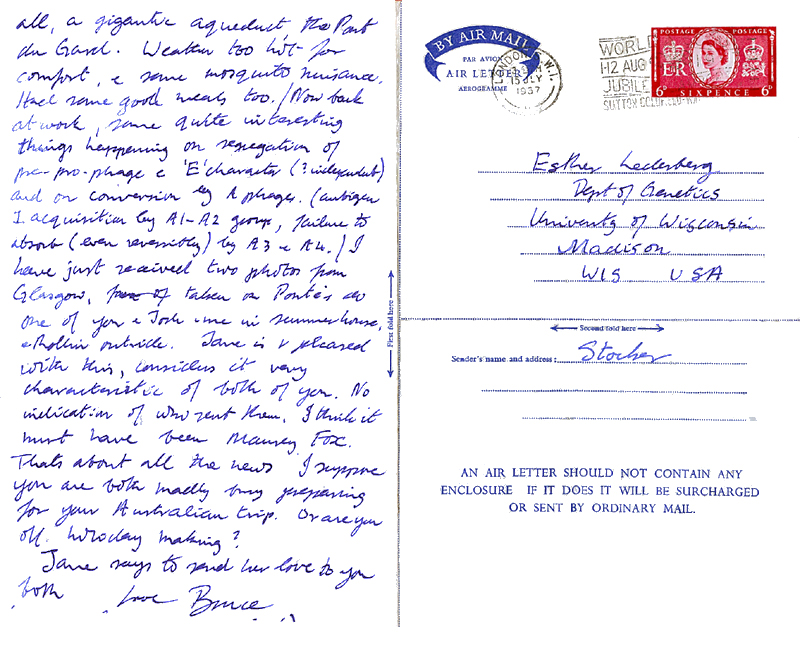 all, a gigantic aqueduct the Pont
du Gard. Weather too hot for
comfort, & some mosquito nuisance.
Had some good meals too. / Now back
at work, some quite interesting
things happening on segregation of
pro-phage & 'E' character (? independent)
and on conversion by A phages. (antigen
I acquisition by A1-A2 group, failure to
absorb (even reversibly) by A3 & A4. / I
have just received two photos from
Glasgow, taken on Ponte's do
one of you & Josh & me in summerhouse,
& Rollin outside. Jane is v pleased
with this, considers it very
characteristic of both of you. No
indication of who sent them, I think it
must have been Maurey Fox.
Thats about all the news I suppose
you are both madly busy preparing
for your Australian trip. Or are you
off making?
Jane says to send her love to you
both Love Bruce
First fold here
BY AIR MAIL
PAR AVION
AIR LETTER
AEROGRAMME
LONDON W.1.
15 JLY
1957
WORLD
1-12 AUG
JUBILEE
SUTTON COLDFIELD
POSTAGE POSTAGE
E R
6D SIXPENCE 6D
Esther Lederberg
Dept of Genetics
University of Wisconsin
Madison
WIS USA
Second fold here
Sender's name and address: Stocker
AN AIR LETTER SHOULD NOT CONTAIN ANY
ENCLOSURE IF IT DOES IT WILL BE SURCHARGED
OR SENT BY ORDINARY MAIL.